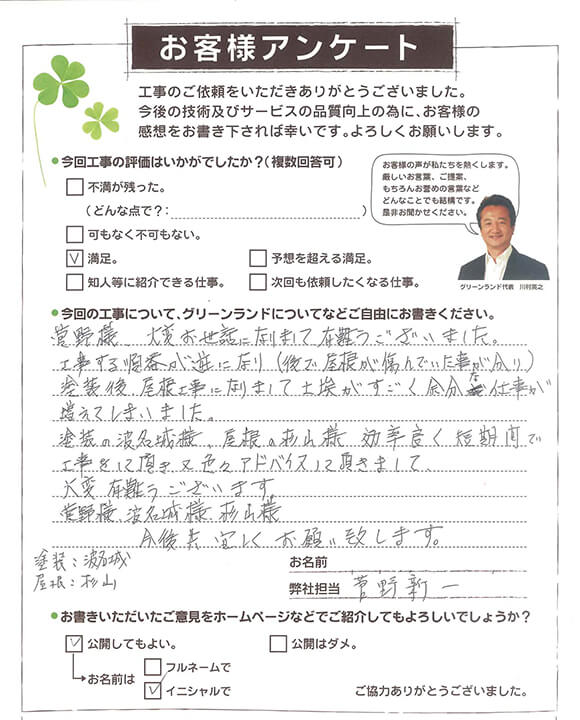 お客様アンケート
工事のご依頼をいただきありがとうございました。
今後の技術及びサービスの品質向上の為に、お客様の
感想をお書き下されば幸いです。よろしくお願いします。
●今回工事の評価はいかがでしたか？（複数回答可）
不満が残った。
（どんな点で？：　）
可もなく不可もない。
満足。
予想を超える満足。
知人等に紹介できる仕事。
次回も依頼したくなる仕事。
お客様の声が私たちを熱くします。
厳しいお言葉、ご提案、
もちろんお誉めの言葉など
どんなことでも結構です。
是非お聞かせください。
グリーンランド代表　川村英之
●今回の工事について、グリーンランドについてなどご自由にお書きください。
菅野様　大変お世話に到まして有難うございました。
工事する順番が逆になり（後で屋根が傷んでいた事が分り）
塗装後　屋根工事になりまして土埃がすごく余分な仕事が
増えてしまいました。
塗装の波名城様、屋根の杉山様　効率良く短期間で
工事をして頂き又色々アドバイスして頂きまして、
大変有難うございます。
菅野様、波名城様、杉山様
今後共宜しくお願い致します。
塗装：波名城
屋根：杉山
お名前
弊社担当　菅野新一
●お書きいただいたご意見をホームページなどでご紹介してもよろしいでしょうか？
公開してもよい。
公開はダメ。
お名前は
フルネームで
イニシャルで
ご協力ありがとうございました。